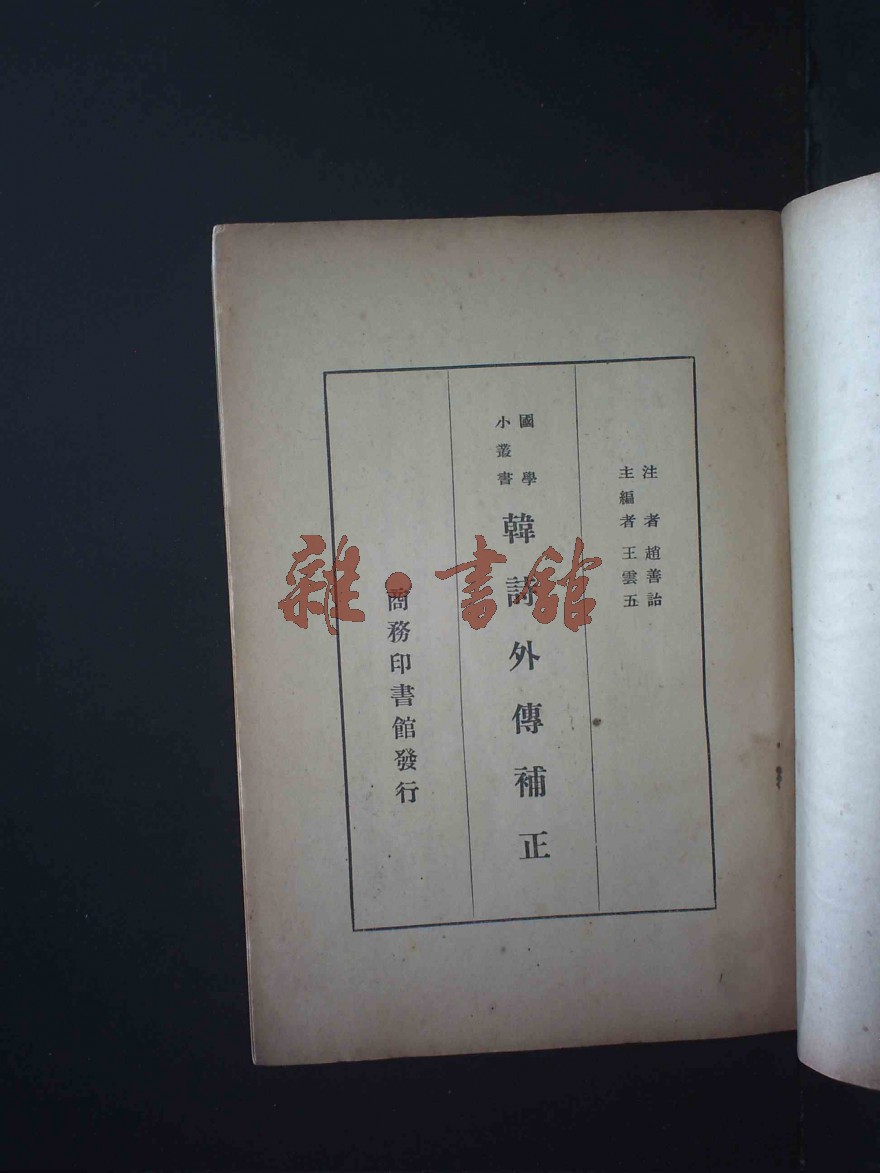 注者趙善詒
主編者王雲五
國學
小叢書
韓詩外傳補正
商務印書館發行
雜·書館